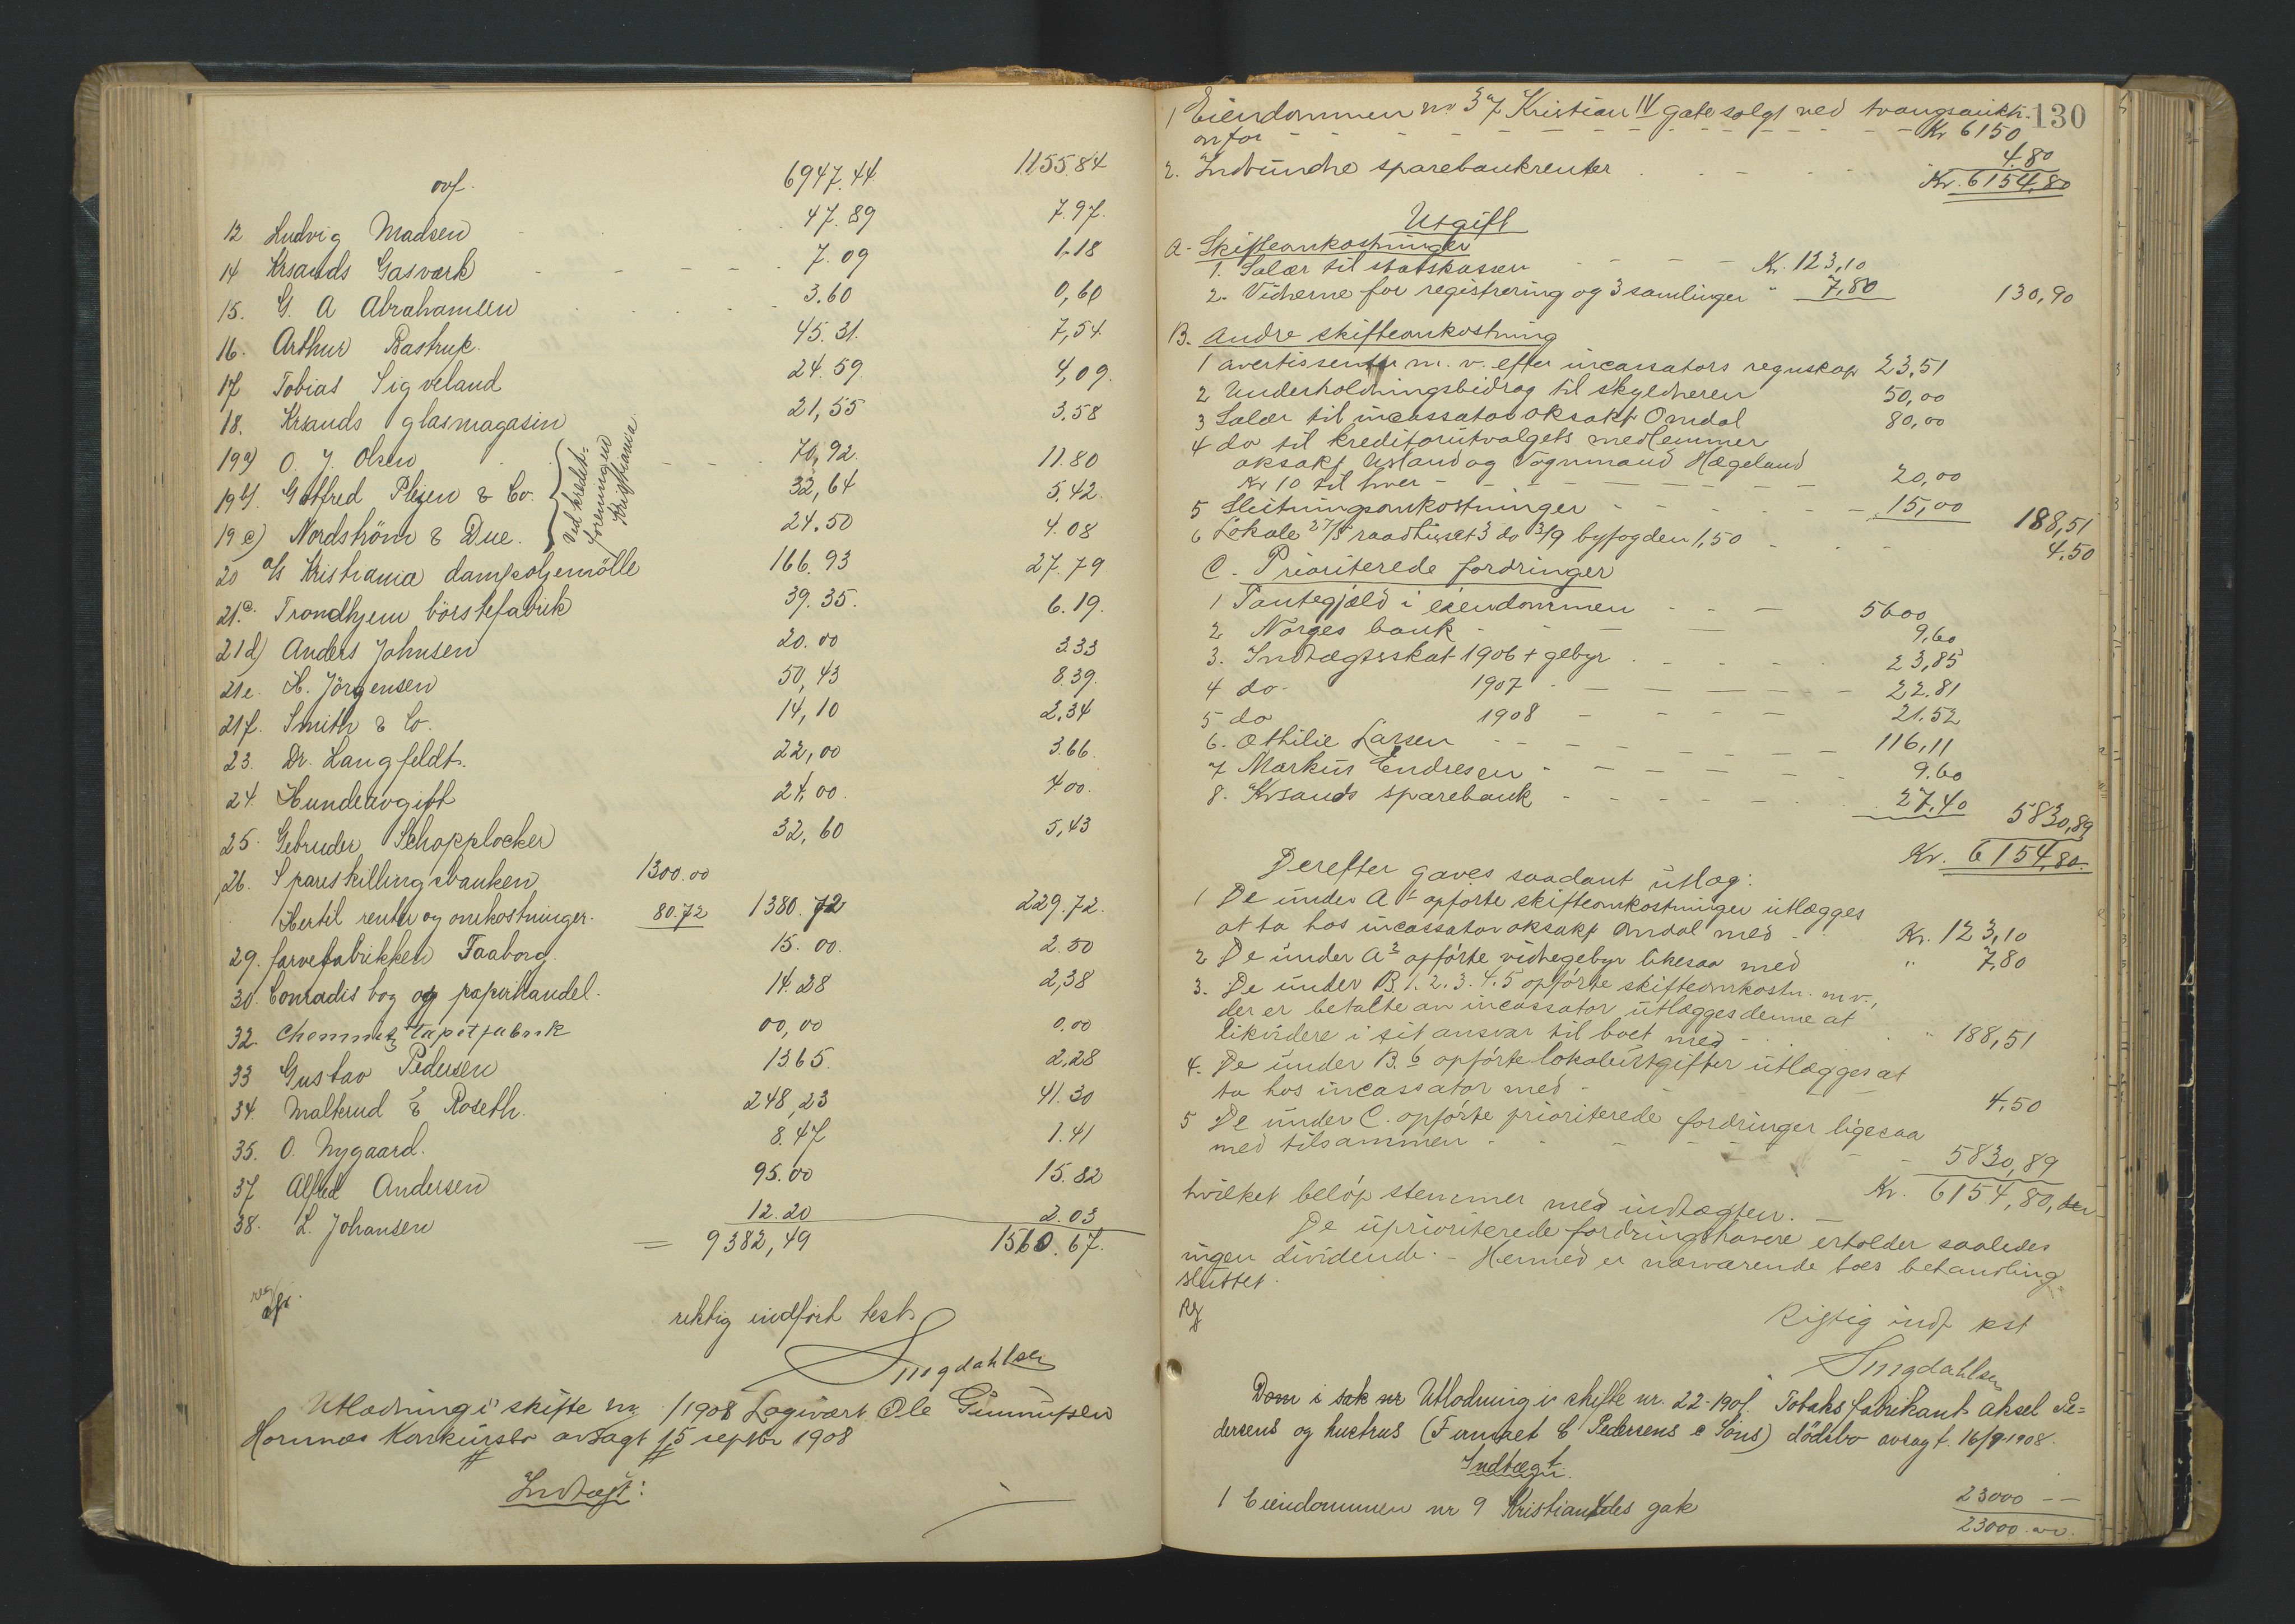 ovf. 6947.44 1155.84
12 Ludvig Madsen 47.89 7.97.
14 Krsands Gasværk 7.09 1.18
15. G. A Abrahamsen 3.60 0,60
16. Arthur Bastrup. 45.31. 7,54.
17 Tobias Sigveland 24.59 4,09.
18. Krsands glasmagasin 21,55 3.58
19a) O. J. Olsen 70,92. 11.80
19b). Gotfred Plejen & Co. 32,64 5,42.
19c) Nordström & Due. 24.50 4.08
Ved kredit-
foreningen
Kristiania
20 a/s Kristiania dampoljemölle 166.93 27.79
21c. Trondhjem börstefabrik 39.35. 6.19.
21d) Anders Johnsen 20.00 3.33
21e. H. Jörgensen 50,43 8.39.
21f. Smith & Co. 14,10 2,34
23. Dr. Langfeldt. 22,00 3.66.
24. Hundeavgift 24,00. 400.
25. Gebruder Schopplocker 32,60 5,43
26. Spareskillingsbanken 1300.00
Hertil renter og omkostninger. 80.72 1380.72 229.72.
29. farvefabrikken Faaborg. 15.00. 2.50
30. Conradis bog og papirhandel. 14.28 2,38
32. Chemnitz Tapetfabrik 00,00 0.00
33 Gustav Pedersen 1365. 2,28
34. Malterud & Roseth. 248,23 41.30
35. O. Nygaard. 8.47 1.41
37 Alfred Andersen 95.00 15.82
38. L. Johansen 12.20 2.03
= 9382,49 1560.67.
riktig indfört test.
Smgdahlsen
Utlodning i skifte nr /1908 Logivært Ole Gunnufsen
Hornnes Konkursbo avsagt 15 septbr 1908
Indtægt:
130
1 Eiendommen nr 37 Kristian IV gate solgt ved tvangsaukti-
on for Kr 6150
2. Indvundne sparebankrenter 4.80
Kr. 6154,80
Utgift
A. Skifteomkostninger
1. Salær til statskassen Kr. 123,10
2. Vidnerne for registrering og 3 samlinger " 7,80 130,90
B. Andre skifteomkostning
1 avertissenter m. v. efter incassators regnskap 23,51
2 Underholdningsbidrag til skyldneren 50,00
3 Salær til incassator oksakf Omdal 80,00
4 do til kreditorutvalgets medlemmer
oksakf Usland og Vognmand Hægeland
Kr 10 til hver 20,00
5 Slutningsomkostninger 15,00 188,51
6 Lokale 27/5 raadhuset 3 do 3/9 byfogden 1,50 4.50
C. Prioriterede fordringer
1 Pantegjæld i eiendommen 5600
2 Norges bank 9,60
3. Indtægtsskat 1906 + gebyr 23,85
4 do. 1907 22.81
5 do 1908 21.52
6. Othilie Larsen 116,11
7 Markus Endresen 9.60
8. Krsands sparebank 27,40 5830,89
Kr. 6154,80.
Derefter gaves saadant utlæg:
1 De under A 1 opförte skifteomkostninger utlægges
at ta hos incassator oksakf Omdal med Kr. 123,10
2 De under A 2 opförte vidnegebyr likesaa med " 7,80
3. De under B. 1. 2. 3. 4. 5 opförte skifteomkostn. m v.,
der er betalte av incassator utlægges denne at
likvidere i sit ansvar til boet med " 188,51
4. De under B. 6 opförte lokalutgifter utlægges at
ta hos incassator med 4,50
5 De under C. opförte prioriterede fordringer ligesaa
med tilsammen 5830,89
Kr. 6154,80,
hvilket belöp stemmer med indtægten.
De uprioriterede fordringshavere erholder saaledes
ingen dividende. - Hermed er nærværende boes behandling
sluttet.
Rigtig indf test
Smgdahlsen
Dom i sak nr Utlodning i skifte nr. 22-1901. Tobaksfabrikant Aksel Pe=
dersens og hustrus (Firmaet C Pedersens Söns) dödsbo avsagt. 16/9-1908.
Indtægt.
1 Eiendommen nr 9 Kristian 4des gate 23000 --
23000.00.